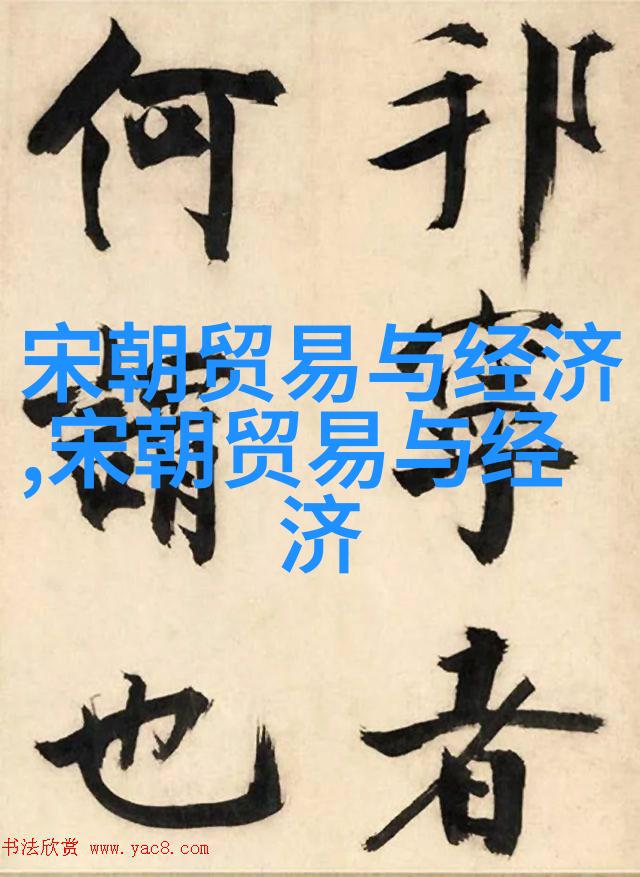 邦寧者
何謂也
宋朝贸易与经济
,宋朝贸易与经
济
书法欣赏 www.yac8.com